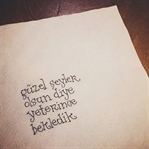 güzel şeyler
olsun diye
yeterince
bekledik